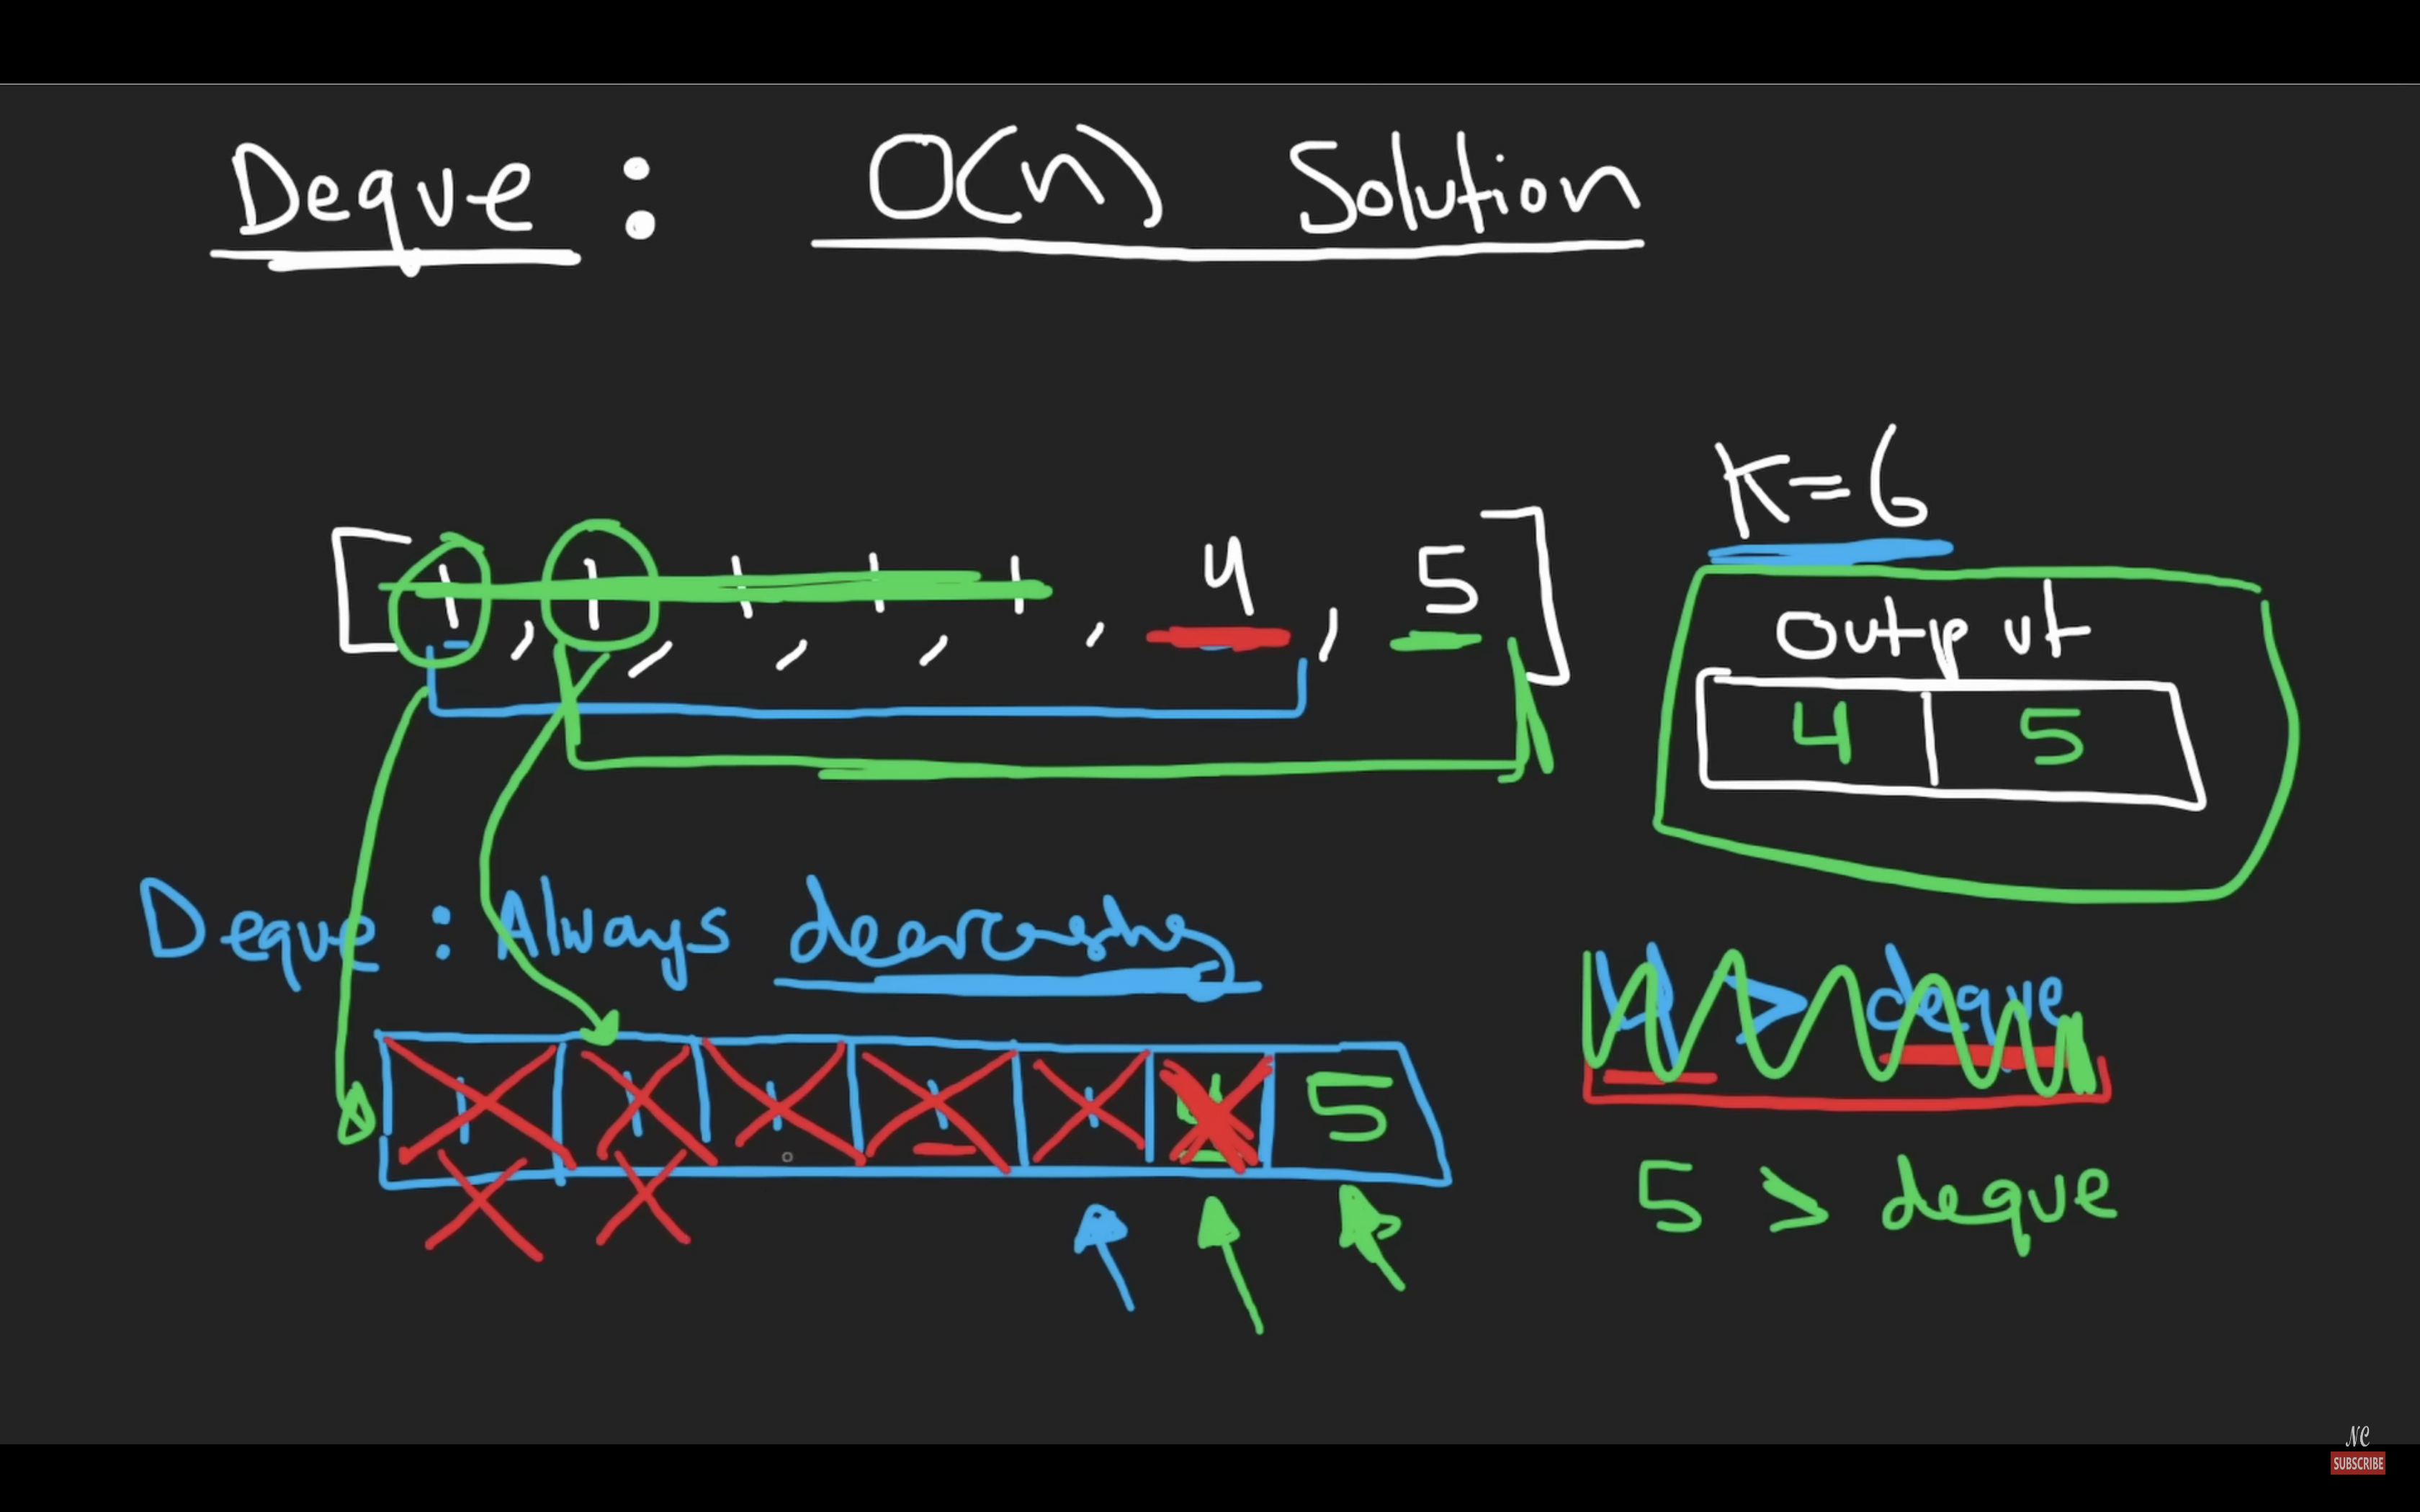 Deque : O(n) Solution
K=6
[1, 1, 1, 1, 1, 4, 5]
Output
4 5
Deque : Always
> deque
1 1 1 1 1 4 5
5 > deque
NC
SUBSCRIBE